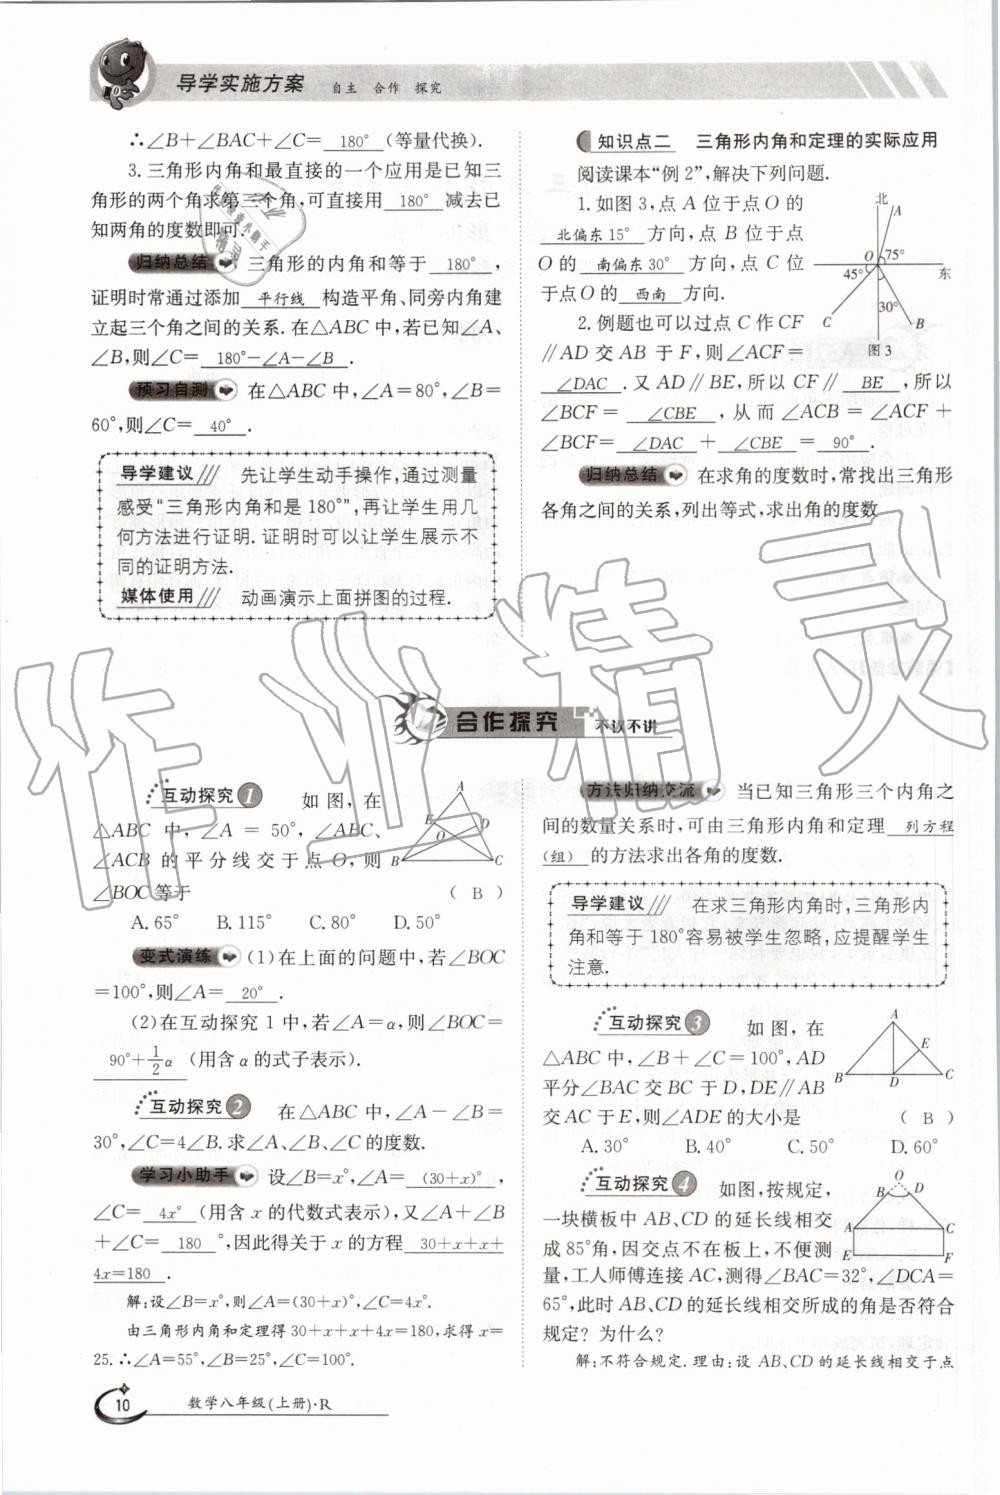 导学实施方案 自主 合作 探究
∴∠B+∠BAC+∠C= 180° (等量代换).
3.三角形内角和最直接的一个应用是已知三
角形的两个角求第三个角,可直接用 180° 减去已
知两角的度数即可.
归纳总结 三角形的内角和等于 180° ,
证明时常通过添加 平行线 构造平角、同旁内角建
立起三个角之间的关系.在△ABC中,若已知∠A、
∠B,则∠C= 180°-∠A-∠B .
预习自测 在△ABC中,∠A=80°,∠B=
60°,则∠C= 40° .
导学建议 先让学生动手操作,通过测量
感受“三角形内角和是180°”,再让学生用几
何方法进行证明.证明时可以让学生展示不
同的证明方法.
媒体使用 动画演示上面拼图的过程.
知识点二 三角形内角和定理的实际应用
阅读课本“例2”,解决下列问题.
1.如图3,点A位于点O的
北偏东15° 方向,点B位于点
O的 南偏东30° 方向,点C位
于点O的 西南 方向.
北
A
O 75°
45° 东
30°
C B
图3
2.例题也可以过点C作CF
∥AD交AB于F,则∠ACF=
∠DAC .又AD∥BE,所以CF∥ BE ,所以
∠BCF= ∠CBE ,从而∠ACB=∠ACF+
∠BCF= ∠DAC + ∠CBE = 90° .
归纳总结 在求角的度数时,常找出三角形
各角之间的关系,列出等式,求出角的度数
作业精灵
合作探究 不议不讲
互动探究1 如图,在
△ABC中,∠A=50°,∠ABC、
∠ACB的平分线交于点O,则
∠BOC等于 ( B )
A
E D
O
B C
A.65° B.115° C.80° D.50°
变式演练 (1)在上面的问题中,若∠BOC
=100°,则∠A= 20° .
(2)在互动探究1中,若∠A=α,则∠BOC=
90°+1/2α (用含α的式子表示).
互动探究2 在△ABC中,∠A-∠B=
30°,∠C=4∠B.求∠A、∠B、∠C的度数.
学习小助手 设∠B=x°,∠A= (30+x)° ,
∠C= 4x° (用含x的代数式表示),又∠A+∠B
+∠C= 180 °,因此得关于x的方程 30+x+x+
4x=180 .
解:设∠B=x°,则∠A=(30+x)°,∠C=4x°.
由三角形内角和定理得30+x+x+4x=180,求得x=
25.∴∠A=55°,∠B=25°,∠C=100°.
方法归纳交流 当已知三角形三个内角之
间的数量关系时,可由三角形内角和定理 列方程
(组) 的方法求出各角的度数.
导学建议 在求三角形内角时,三角形内
角和等于180°容易被学生忽略,应提醒学生
注意.
互动探究3 如图,在
△ABC中,∠B+∠C=100°,AD
平分∠BAC交BC于D,DE∥AB
交AC于E,则∠ADE的大小是 ( B )
A
E
B D C
A.30° B.40° C.50° D.60°
互动探究4 如图,按规定,
一块横板中AB、CD的延长线相交
成85°角,因交点不在板上,不便测
量,工人师傅连接AC,测得∠BAC=32°,∠DCA=
65°,此时AB、CD的延长线相交所成的角是否符合
规定?为什么?
O
B D
A C
E F
解:不符合规定.理由:设AB、CD的延长线相交于点
10 数学八年级(上册)·R